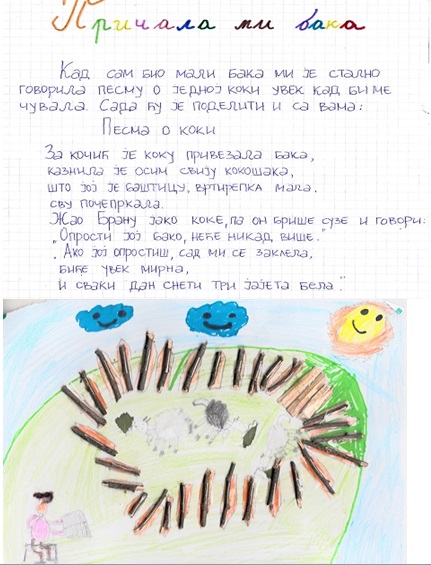 Причала ми бака
Кад сам био мали бака ми је стално
говорила песму о једној коки увек кад би ме
чувала. Сада ћу је поделити и са вама:
Песма о коки
За кочић је коку привезала бака,
казнила је осим свију кокошака,
што јој је баштицу, вртирепка мала,
сву почепркала.
Жао Брану јако коке, па он брише сузе и говори:
„Опрости јој бако, неће никад више."
„Ако јој опростиш, сад ми се заклела,
биће увек мирна,
и сваки дан снети три јајета бела."